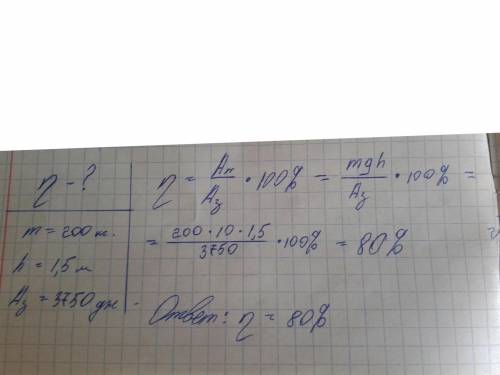 η - ?
m = 200 кг.
h = 1,5 м
Aз = 3750 дж.
η = Aп/Aз · 100% = mgh/Aз · 100% =
= 200·10·1,5/3750 · 100% = 80%
Ответ: η = 80%